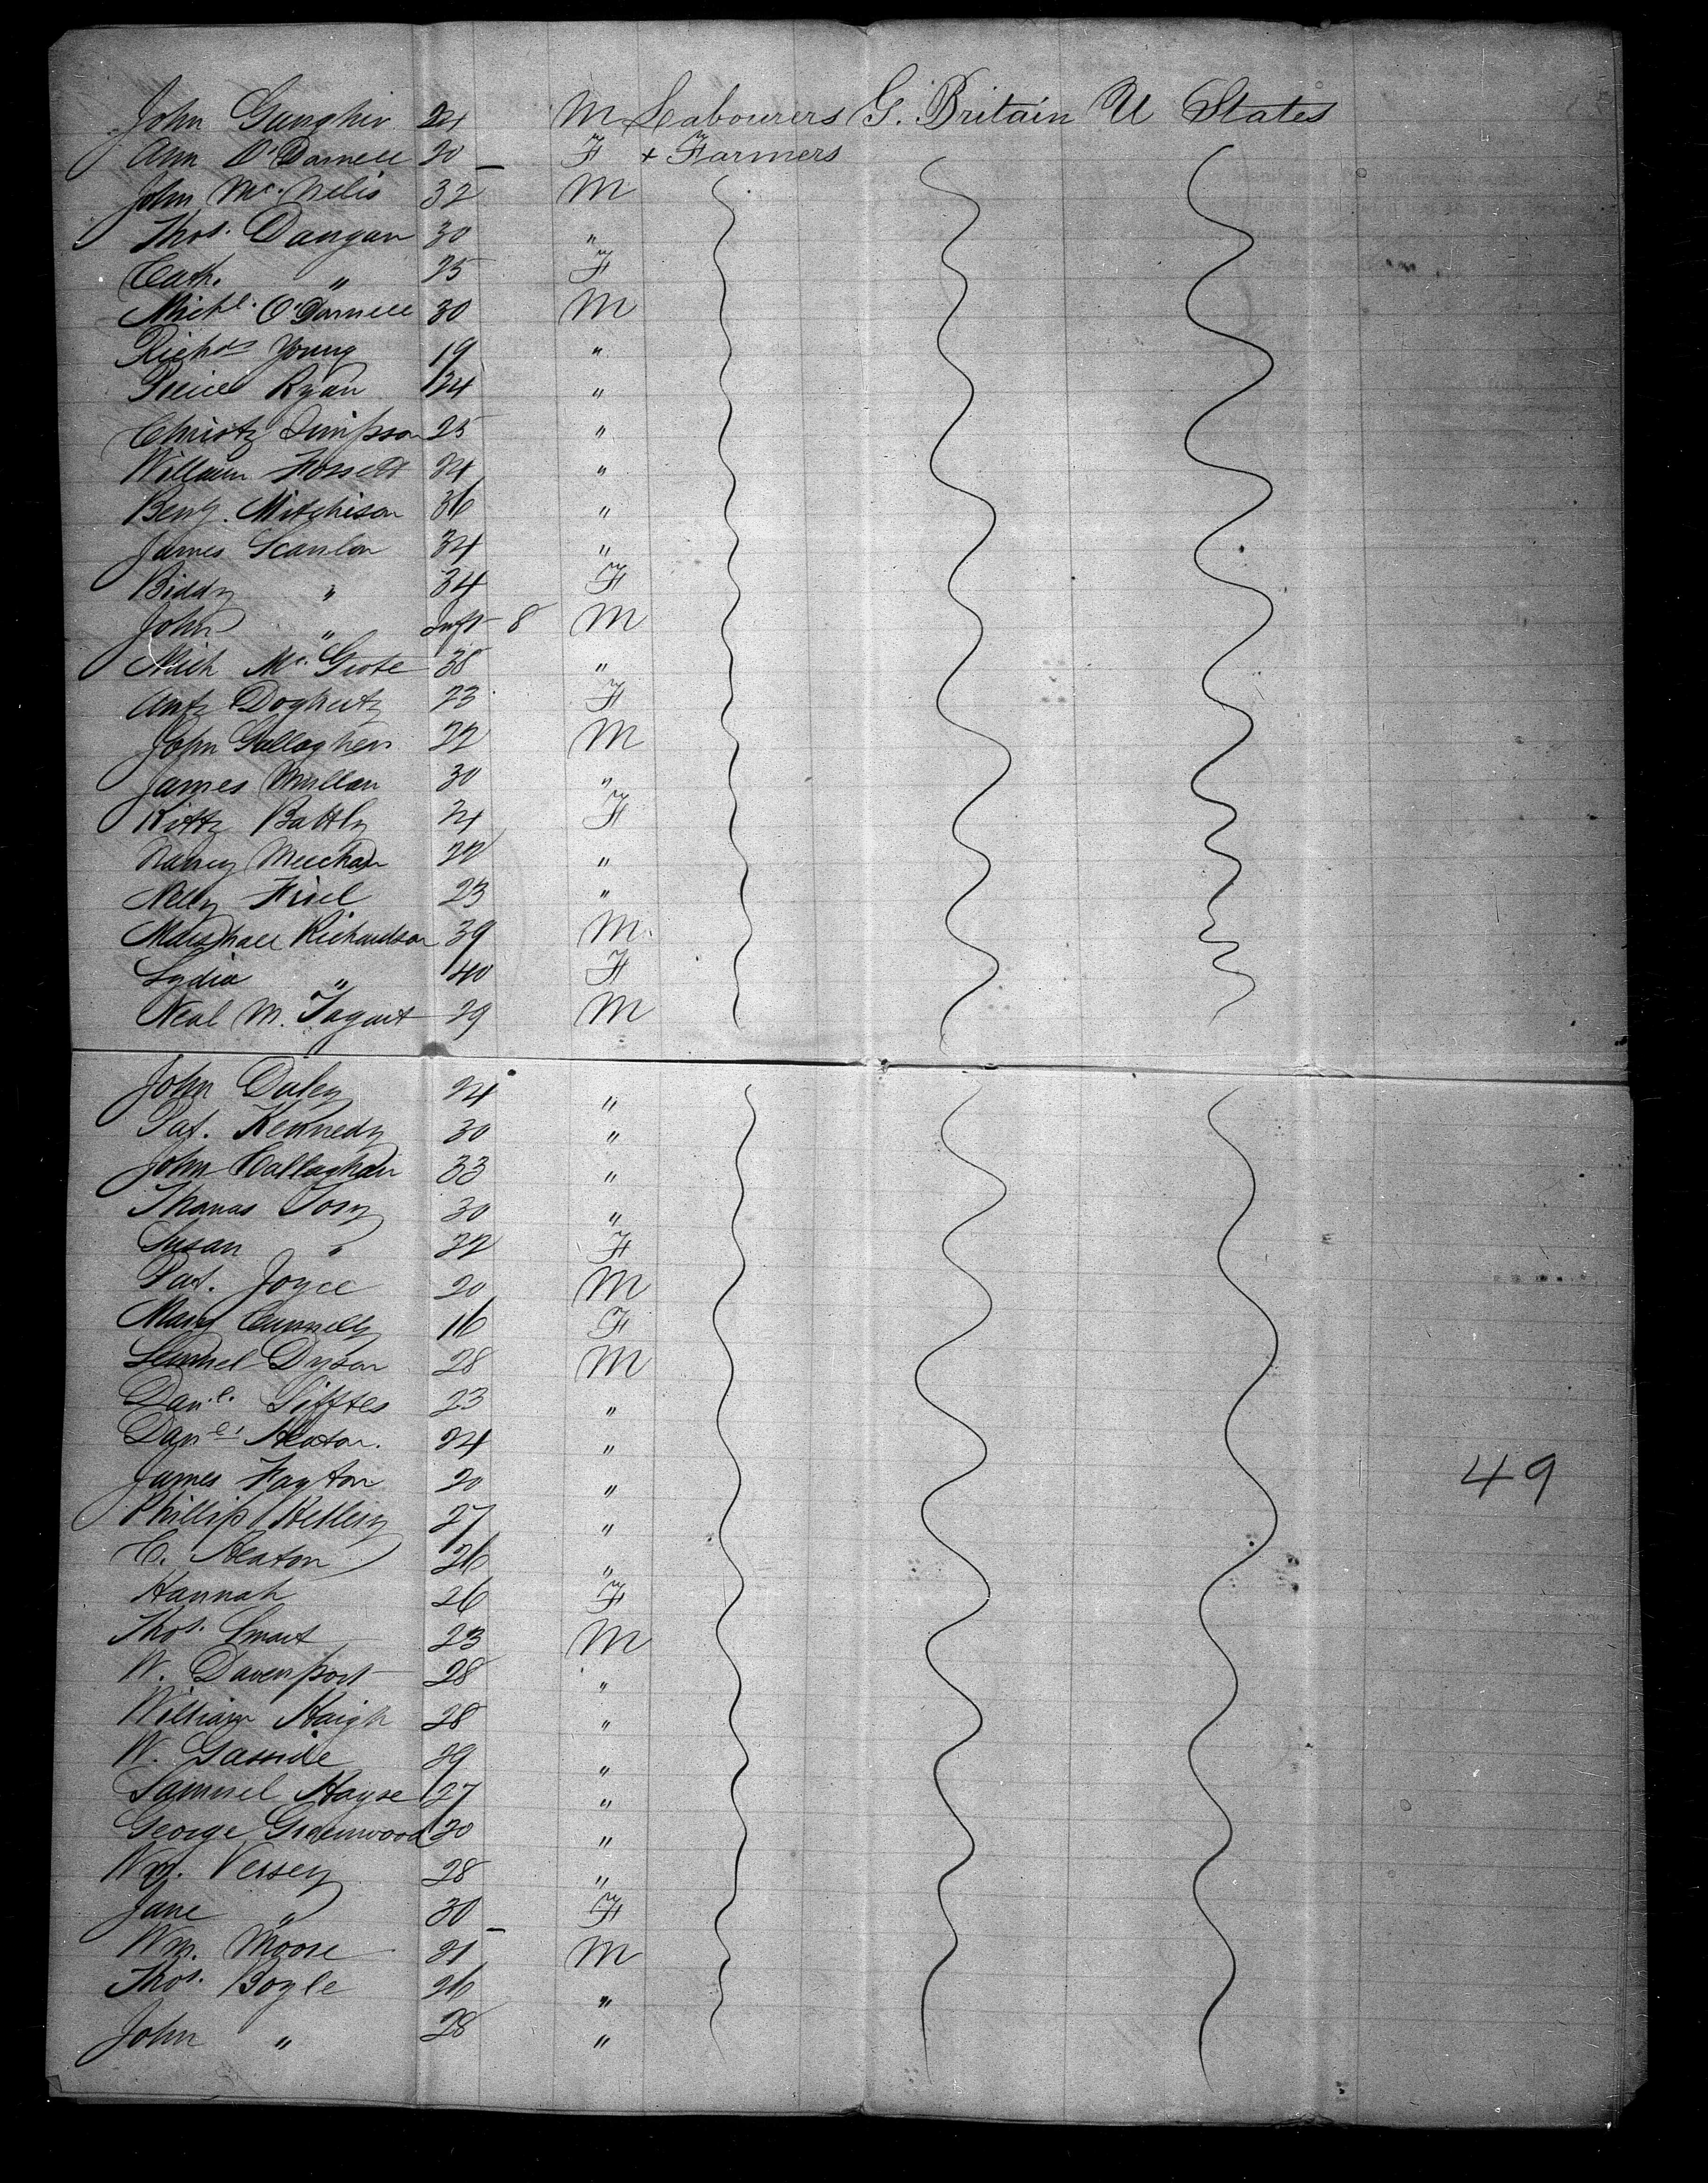 John Gaughin 24 M Labourers G. Britain U States
Ann O'Donnell 20 F + Farmers
John Mc. Nelis 32 M
Thos. Dangan 30 "
Cath. " 25 F
Michl. O'Donnell 30 M
Richds Young 19 "
Pierce Ryan 34 "
Christy Simpson 25 "
William Fossett 24 "
Benj. Mitchison 36 "
James Scanlon 34 "
Biddy " 34 F
John " Inft 8 M
Mich Mc. 38 "
Anty Dogherty 23 F
John Gallagher 22 M
James Mullan 30 "
Kitty Battly 21 F
Nancy Meechan 22 "
Nelly 23 "
Marshall Richardson 39 M.
Lydia " 40 F
Neal M. Tagart 29 M
John Daley 24 "
Pat. Kennedy 30 "
John Callaghan 33 "
Thomas 30 "
Susan " 22 F
Pat. Joyce 20 M
Mary Connelly 16 F
Samuel Dyson 28 M
Danl. 23 "
Danl. Heaton. 24 "
James Fayton 20 "
49
Phillip 27 "
C. Heaton 26 "
Hannah 26 F
Thos. Smart 23 M
W. Davenport 28 "
William Haigh 28 "
W. Gasside 29 "
Samuel Hayse 27 "
George Greenwood 20 "
Wm. Versey 28 "
Jane " 30 F
Wm. Moore 21 M
Thos. Boyle 26 "
John " 28 "